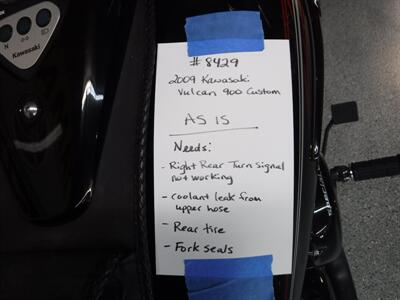 N
Kawasaki
#8429
2009 Kawasaki
Vulcan 900 Custom
AS IS
Needs:
- Right Rear Turn Signal
not working
- coolant leak from
upper hose
- Rear tire
- Fork seals